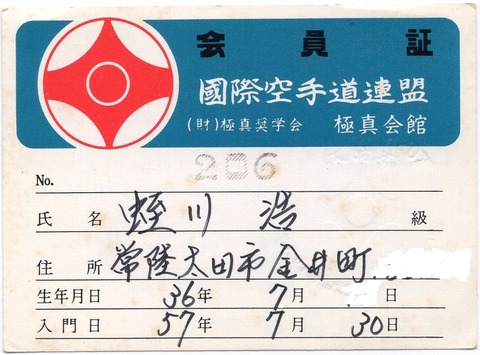 会員証
國際空手道連盟
(財)極真奨学会 極真会館
206
No.
氏名 蛭川 浩 級
住所 常陸太田市金井町
生年月日 36年 7月 日
入門日 57年 7月 30日